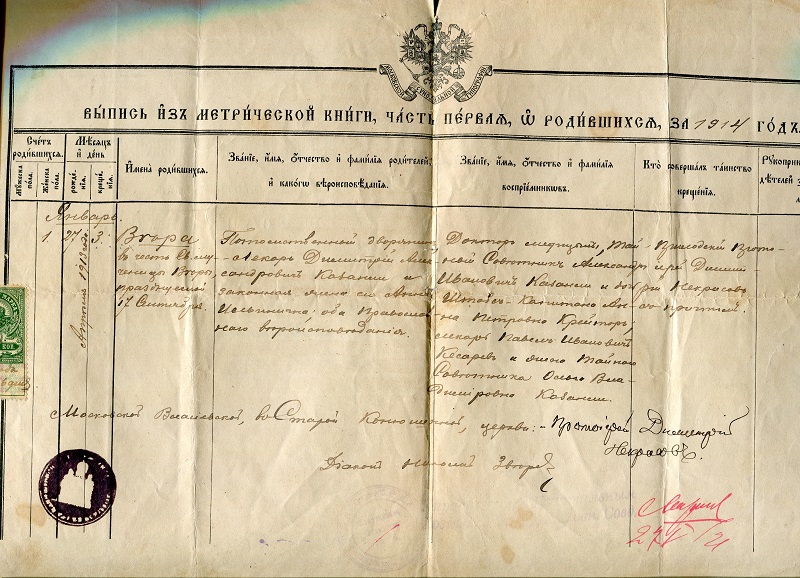 ВЫПИСЬ ИЗЪ МЕТРИЧЕСКОЙ КНИГИ, ЧАСТЬ ПЕРВАЯ, Ѡ РОДИВШИХСЯ, ЗА 1914 ГОДЪ
Счетъ родившихся.
Мужеска пола.
Женска пола.
Мѣсяцъ и день
рожденія.
крещенія.
Имена родившихся.
Званіе, имя, отчество и фамилія родителей, и какого вѣроисповѣданія.
Званіе, имя, отчество и фамилія воспріемниковъ.
Кто совершалъ таинство крещенія.
Январь.
1.
27
3.
Вѣра
въ честь Св. му-
ченицы Вѣры,
празднуемой
17 Сентября.
Потомственный дворянинъ
лекарь Димитрій Алек-
сандровичъ Казанли и
законная жена его Анна
Ильинична; оба Православ-
наго вѣроисповѣданія.
Докторъ медицины, Тай-
ный Совѣтникъ Александръ
Ивановичъ Казанли и вдова
Штабсъ-Капитана Ан-
на Петровна
лекарь Павелъ Ивановичъ
Кесаревъ и жена Тайнаго
Совѣтника Ольга Вла-
диміровна Казанли.
Приходскій Прото-
іерей Димит-
рій Некрасовъ
съ причтомъ.
Московской Васильевской, въ Старой Конюшенной, церкви:- Протоіерей Димитрій
Некрасовъ.
Діаконъ Николай